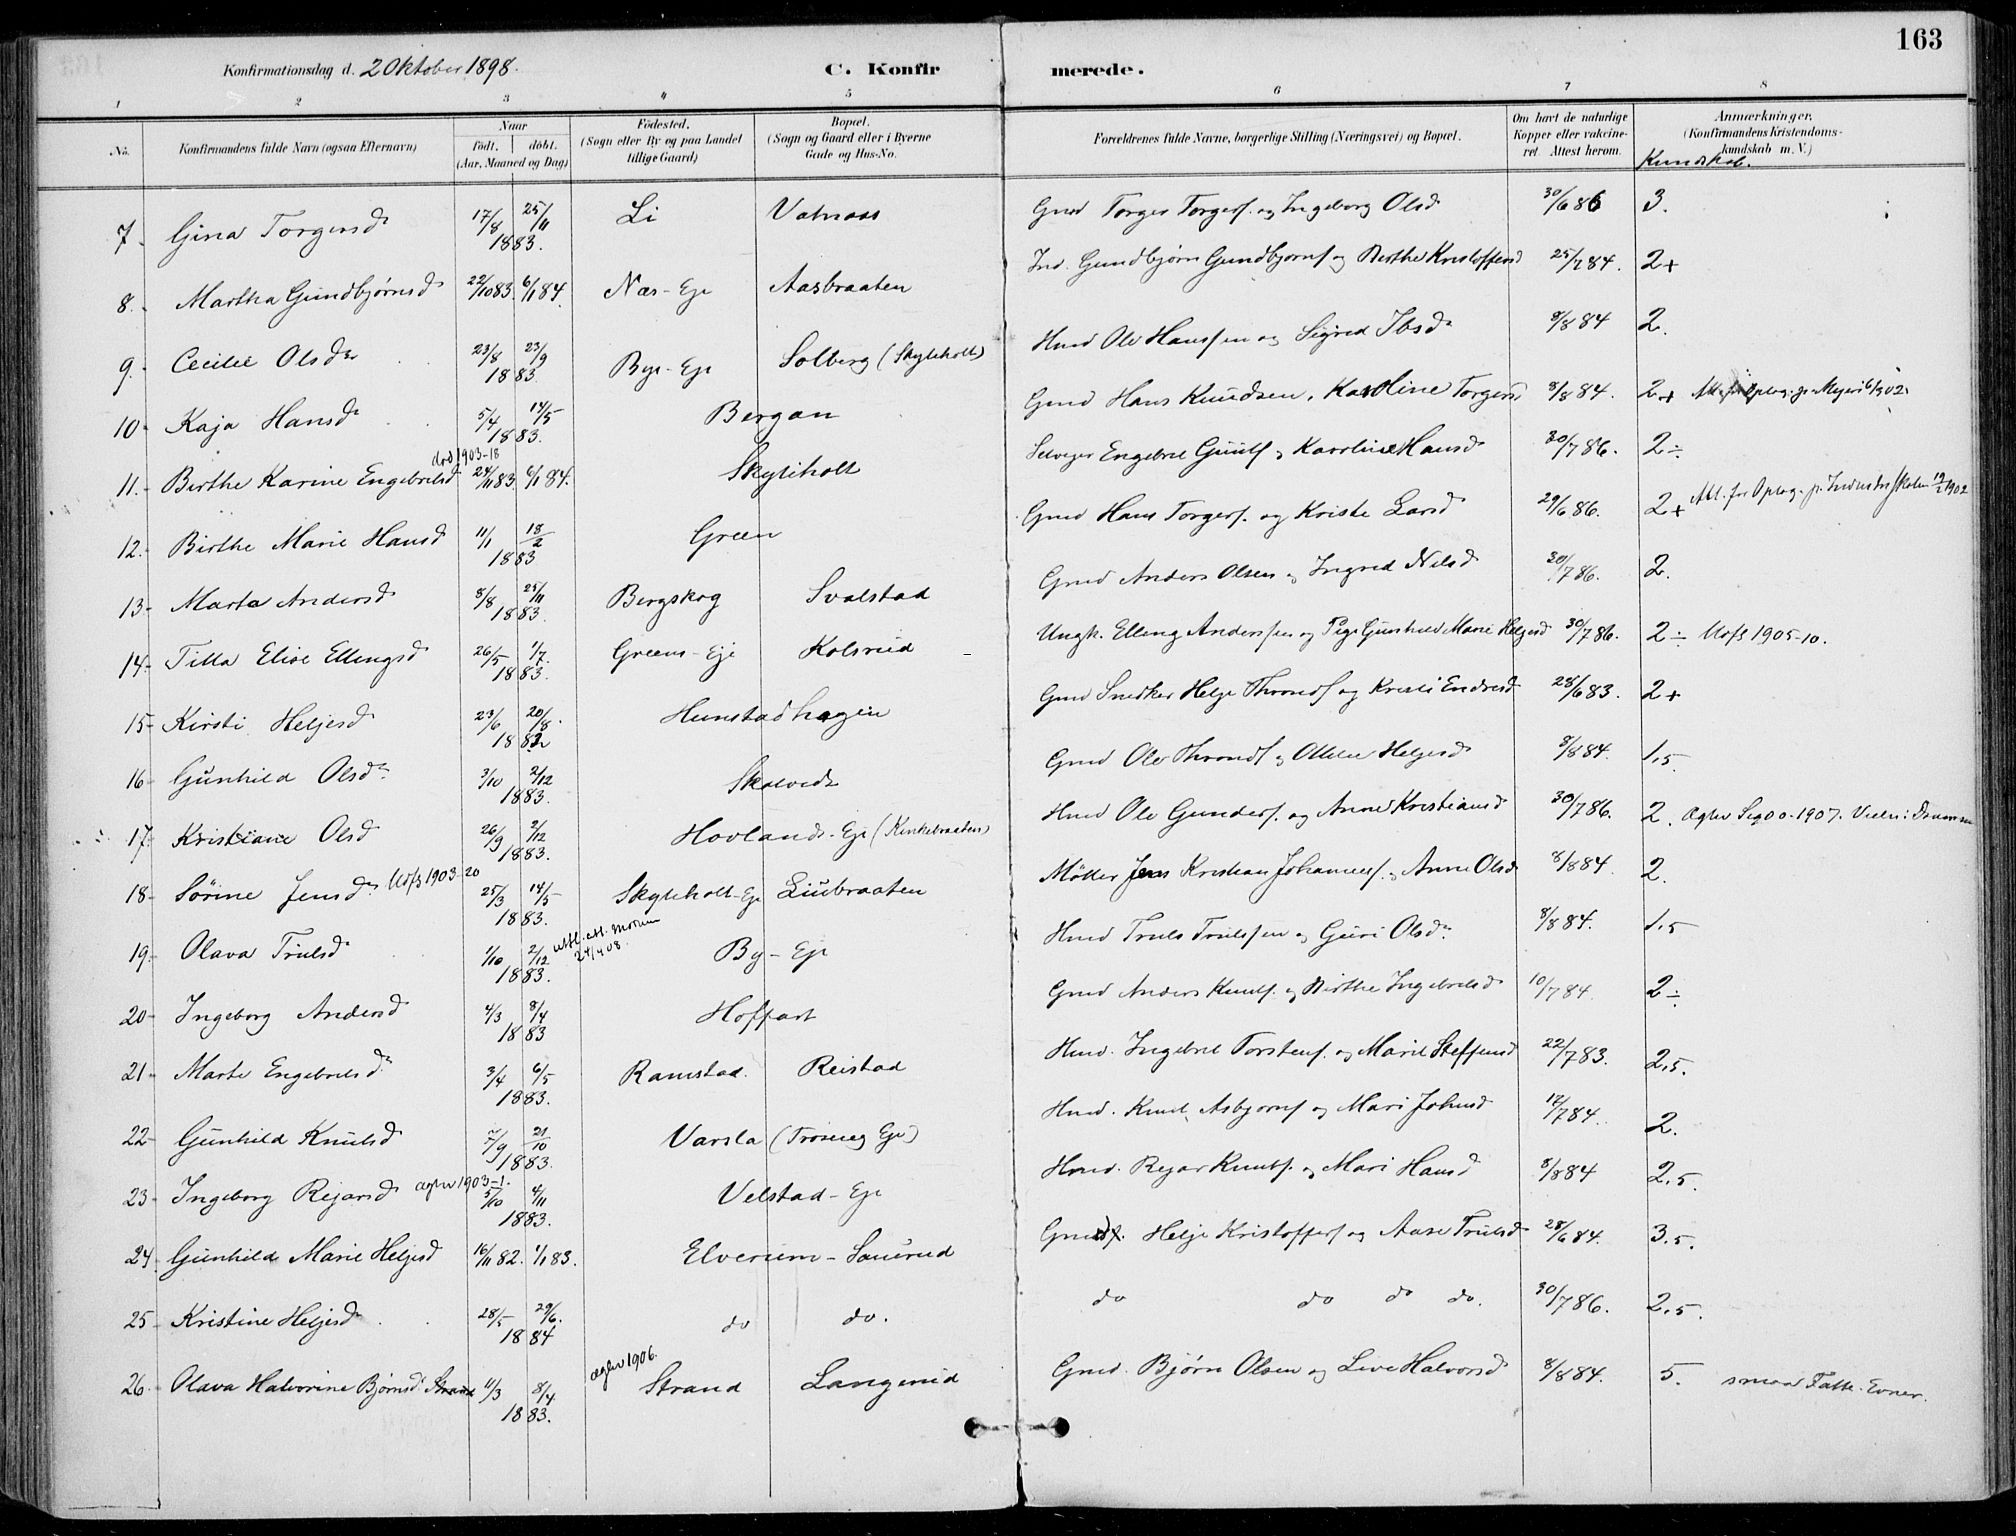 163
Konfirmationsdag d. 2 Oktober 1898.
C. Konfirmerede.
1 2 3 4 5 6 7 8
No.
Konfirmandens fulde Navn (ogsaa Efternavn)
Naar födt. döbt. (Aar, Maaned og Dag)
Födested. (Sogn eller By og paa Landet tillige Gaard)
Bopæl. (Sogn og Gaard eller i Byerne Gade og Hus-No.
Forældrenes fulde Navne, borgerlige Stilling (Næringsvei) og Bopæl.
Om havt de naturlige Kopper eller vakcineret. Attest herom.
Anmærkninger, (Konfirmandens Kristendomskundskab m. V.)
Kundskab.
7. Gina Torgersd 17/8 25/11 1883. Li Vatnaas Gmd Torger Torgers. og Ingeborg Olsd 30/6 86 3.
8. Martha Gundbjørnsd 22/10 83. 6/1 84. Næs-Eje Aasbraaten Ind. Gundbjørn Gundbjørns og Berthe Kristoffersd 25/7 84. 2+
9. Cecilie Olsdr 23/8 23/9 1883 Bye-Eje Solberg (Skyteholt) Hmd Ole Hanssen og Sigrid Ibsdr 9/8 84 2.
10. Kaja Hansd 5/4 14/5 1883. Bergan Gmd Hans Knudsen, Karoline Torgersd 8/8 84. 2+
11. Birthe Karine Engebretsd død 1903-18 24/11 83. 6/1 84. Skyteholt Selveger Engebret Guuls og Karoline Hansd 30/7 86. 2÷
12. Birthe Marie Hansd 11/1 18/2 1883 Green Gmd Hans Torgers. og Kristi Larsd 29/6 86. 2+ Att. for Optag. p. Industriskolen 19/2 1902
13. Marta Andersd 8/8 25/11 1883. Bergskog Svalstad Gmd Anders Olsen og Ingrid Nilsd 30/7 86. 2.
14. Tilla Elise Ellingsd 26/5 1/7. 1883. Greens-Eje Kolsrud Ungk. Elling Anderssen og Pige Gunhild Marie Helgesd 30/7 86. 2÷ Udfl 1905-10.
15. Kirsti Helgesd 23/6 20/8. 1882 Hunstadhagen Gmd Snedker Helge Thronds og Kristi Endresd 28/6 83. 2+
16. Gunhild Olsdr 3/10 2/12 1883. Skalvedt Gmd Ole Thronds og Ottilie Helgesd 8/8 84. 1,5.
17. Kristiane Olsd 26/9 2/12 1883. Hovlands-Eje (Kinkebraaten) Hmd Ole Gunders. og Anne Kristiansd 30/7 86. 2.
18. Sørine Jensdr Udfl 1903-20 25/3 14/5 1883. Skyteholt-Eje Liubraaten Møller Jens Kristian Johannes. og Anne Olsd 8/8 84. 2.
19. Olava Trulsd 1/10 2/12 1883. utfl. att. Modum 24/4 08. By-Eje Hmd Truls Trulssen og Guri Olsdr 8/8 84. 1,5
20. Ingeborg Andersd 4/3 8/4 1883 Hoffart Gmd Anders Knuts. og Birthe Ingebretsd 10/7 84. 2÷
21. Marte Engebretsdr 3/4 6/5 1883. Ramstad. Reistad Hmd. Ingebret Torstens. og Marit Steffensd 22/7 83. 2,5.
22. Gunhild Knutsd 7/9 21/10 1883. Varsla Hmd. Knut Asbjørns og Mari Johnsd 12/7 84. 2.
23. Ingeborg Rejarsd ægtev 1903-1. 5/10 4/11 1883. Velstad-Eje Hmd. Rejar Knuts. og Mari Hansd 8/8 84 2,5.
24. Gunhild Marie Helgesd 16/11 82. 1/1 83. Elverum-Saurud Gmd. Helge Kristoffers og Aase Trulsd 28/6 84. 3,5.
25. Kristine Helgesd 28/5 29/6. 1884 do do. do do do do. 30/7 86. 2,5.
26. Olava Halvorine Bjørnsd Strand 11/3 8/4 1883. ægtev 1906. Strand Langerud Gmd. Bjørn Olsen og Live Halvorsd 8/8 84. 5. smaa Fatte-Evner.